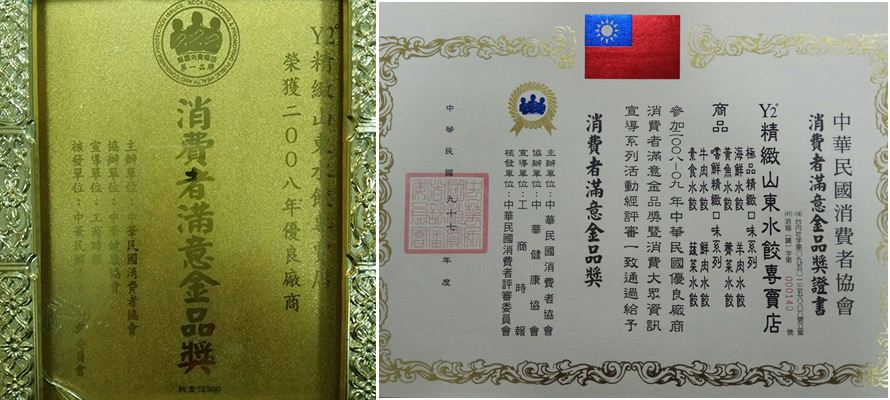 Y2°精緻山東水餃專賣店
榮獲二00八年優良廠商
消費者滿意金品獎
主辦單位：中華民國消費者協會
協辦單位：中
宣導單位：工
核發單位：中華
委員會
純金箔999
第一品牌
中華民國消費者協會
消費者滿意金品獎證書
000140 號
Y2°精緻山東水餃專賣店
商品
極品精緻口味系列
海鮮水餃 羊肉水餃
黃魚水餃 養菜水餃
嚐鮮精緻口味系列
牛肉水餃 鮮肉水餃
素食水餃 蔬菜水餃
參加二00八-0九年中華民國優良廠商
消費者滿意金品獎暨消費大眾資訊
宣導系列活動經評審一致通過給予
消費者滿意金品獎
主辦單位：中華民國消費者協會
協辦單位：中華健康協會
宣導單位：工商時報
核發單位：中華民國消費者評審委員會
中華民國九十七年度